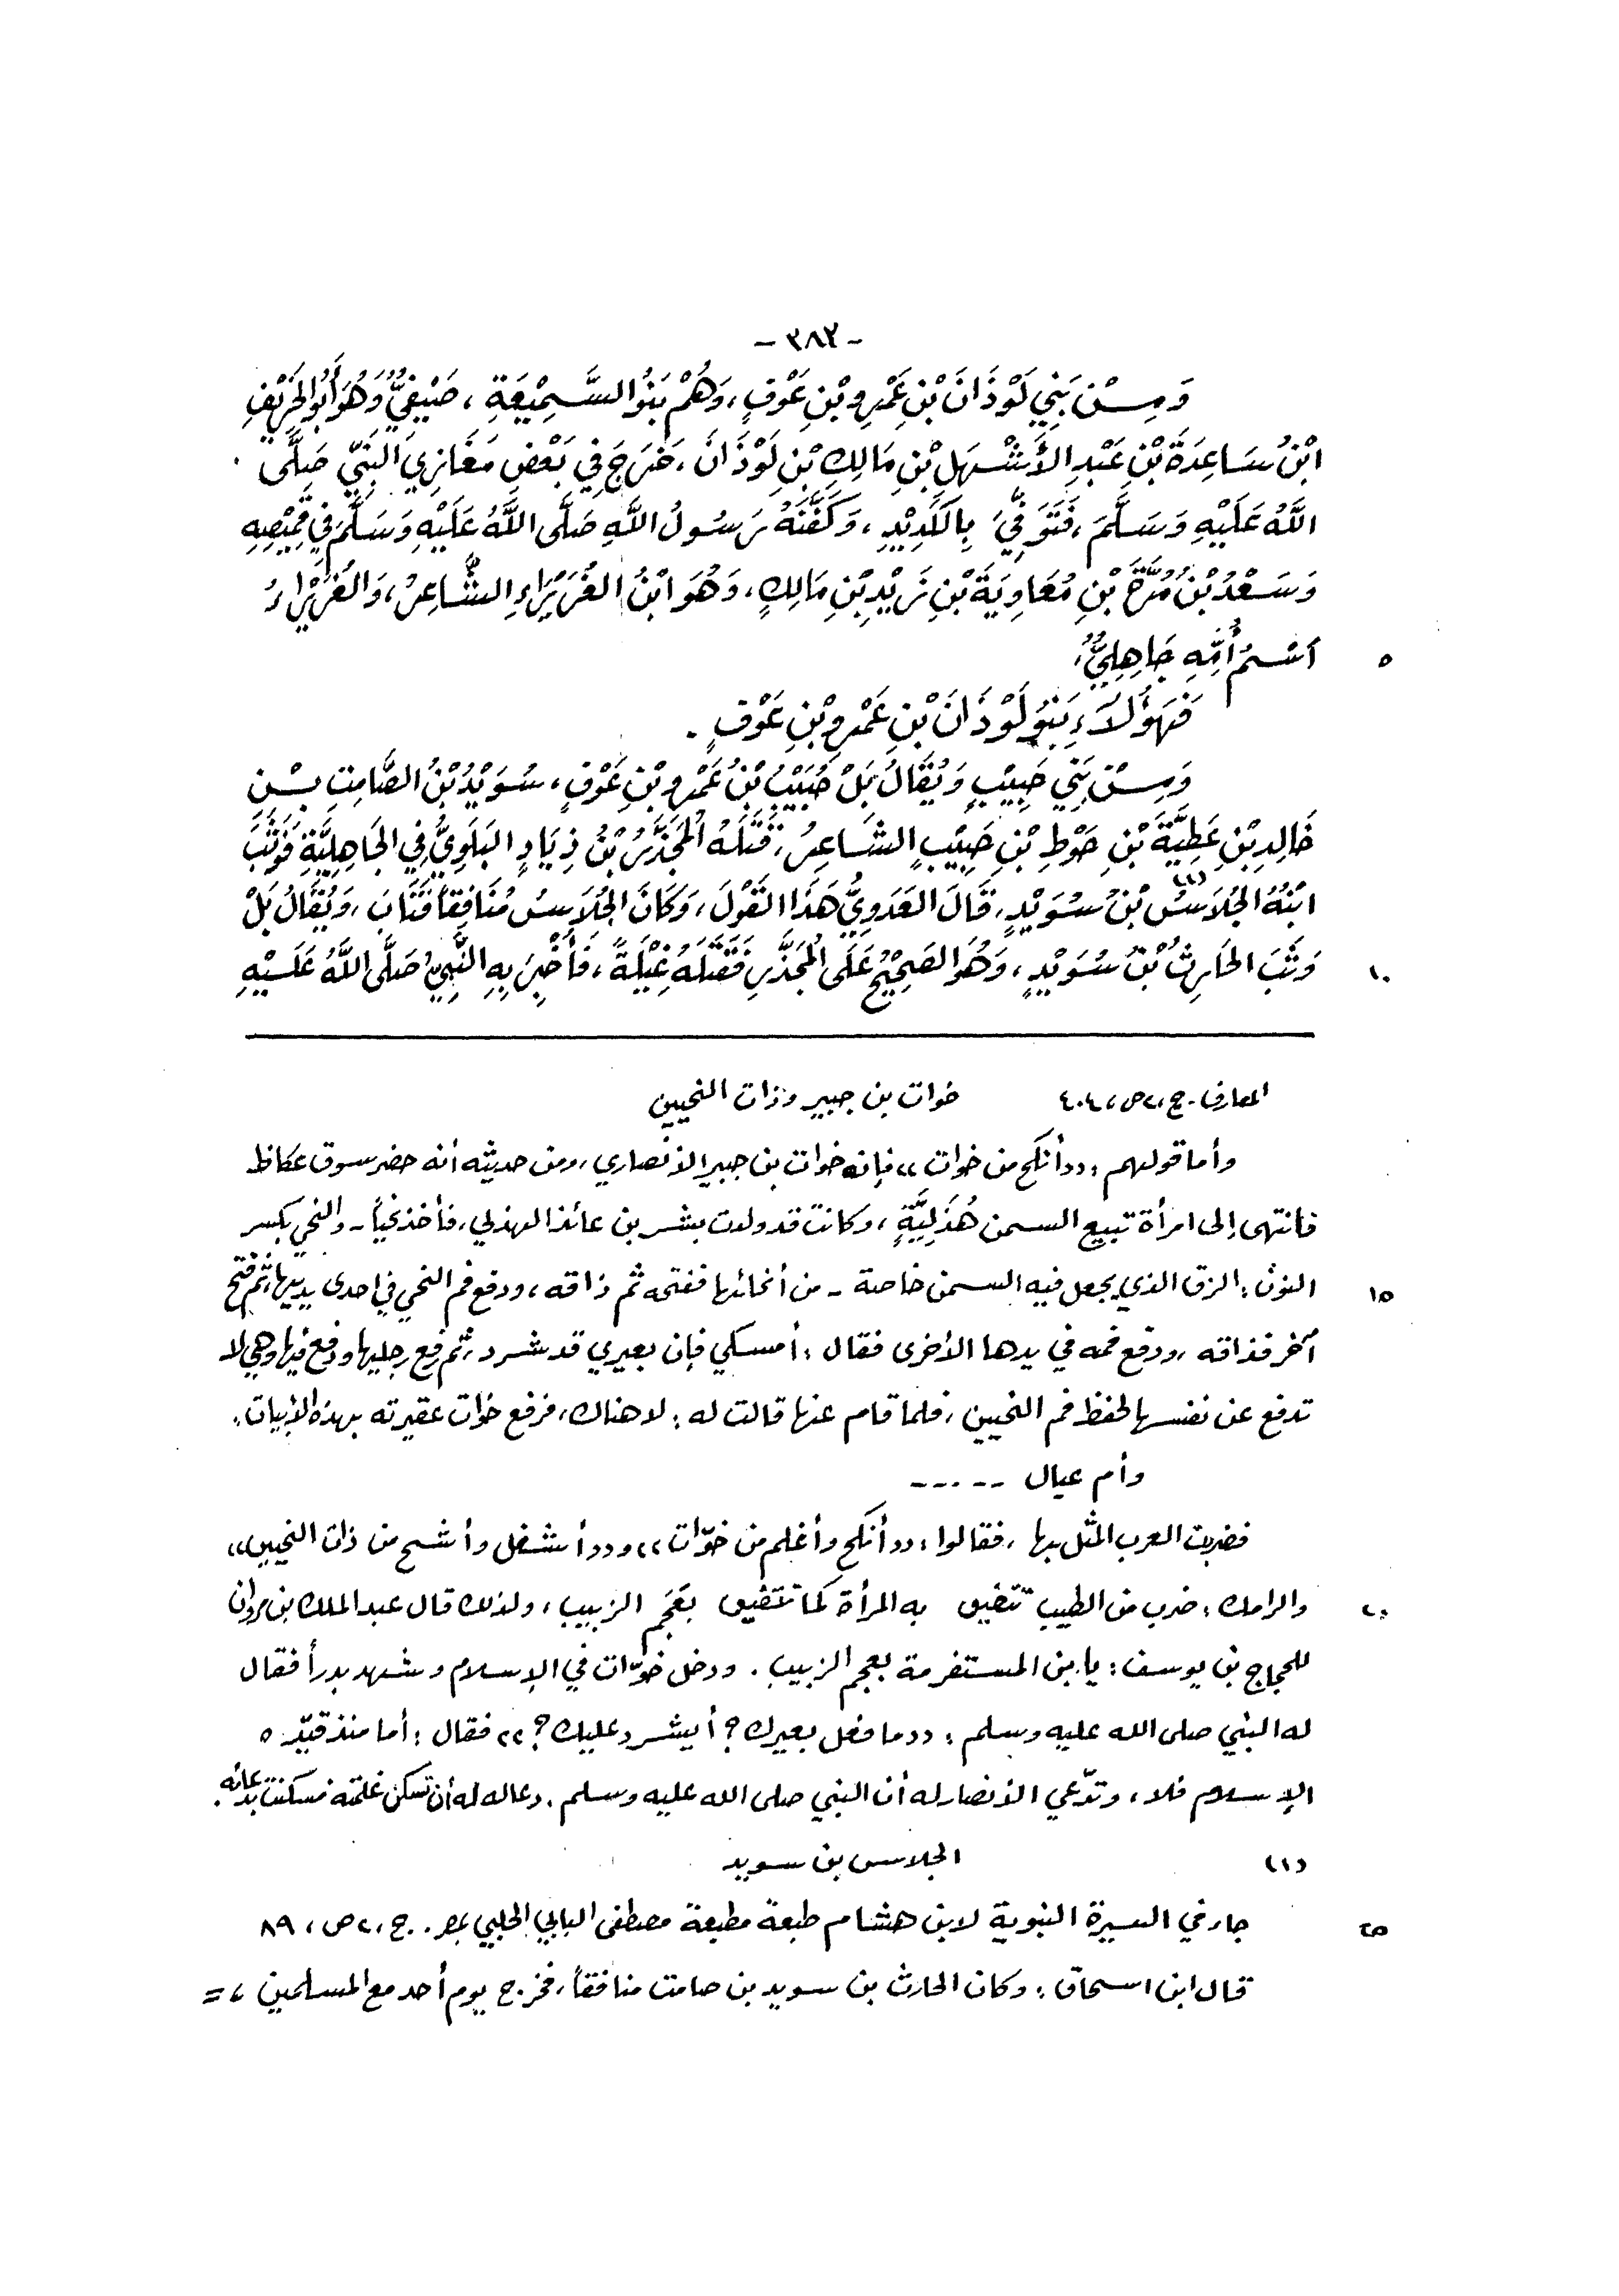 - ٣٨٢ -
وَمِنْ بَنِي لَوْذَانَ بْنِ عَمْرِو بْنِ عَوْفٍ، وَهُمْ بَنُو السَّمِيْعَةِ، صَيْفِيٌّ وَهُوَ أَبُو الخَرِيْفِ
ابْنُ سَاعِدَةَ بْنِ عَبْدِ الأَشْهَلِ بْنِ مَالِكِ بْنِ لَوْذَانَ، خَرَجَ فِي بَعْضِ مَغَازِي النَّبِيِّ صَلَّى
اللَّهُ عَلَيْهِ وَسَلَّمَ، فَتُوُفِّيَ بِالكَدِيْدِ، وَكَفَّنَهُ رَسُولُ اللَّهِ صَلَّى اللَّهُ عَلَيْهِ وَسَلَّمَ فِي قَمِيْصِهِ
وَسَعْدُ بْنُ مُرَّةَ بْنِ مُعَاوِيَةَ بْنِ زَيْدِ بْنِ مَالِكٍ، وَهُوَ ابْنُ الغُرَيْرَاءِ الشَّاعِرُ، وَالغُرَيْرَاءُ
٥ اسْمُ أُمِّهِ جَاهِلِيٌّ.
فَهَؤُلَاءِ بَنُو لَوْذَانَ بْنِ عَمْرِو بْنِ عَوْفٍ.
وَمِنْ بَنِي حَبِيْبٍ وَيُقَالُ بَلْ حُبَيْبُ بْنُ عَمْرِو بْنِ عَوْفٍ، سُوَيْدُ بْنُ الصَّامِتِ بْنِ
خَالِدِ بْنِ عَطِيَّةَ بْنِ حَوْطِ بْنِ حَبِيْبٍ الشَّاعِرُ، قَتَلَهُ المُجَذَّرُ بْنُ ذِيَادٍ البَلَوِيُّ فِي الجَاهِلِيَّةِ فَوَثَبَ
ابْنُهُ الجُلَاسُ(١) بْنُ سُوَيْدٍ، قَالَ العَدَوِيُّ هَذَا القَوْلَ، وَكَانَ الجُلَاسُ مُنَافِقاً فَتَابَ، وَيُقَالُ بَلْ
١٠ وَثَبَ الحَارِثُ بْنُ سُوَيْدٍ، وَهُوَ الصَحِيْحُ عَلَى المُجَذَّرِ فَقَتَلَهُ غِيْلَةً، فَأُخْبِرَ بِهِ النَّبِيُّ صَلَّى اللَّهُ عَلَيْهِ
المعارف. ج، ٢ ص، ٤٠٤ خوات بن جبير وذات النحيين
وأما قولهم: «أنكح من خوات» فإنه خوات بن جبير الأنصاري، ومن حديثه أنه حضر سوق عكاظ
فانتهى إلى امرأة تبيع السمن هُذَلِيَّةٍ، وكانت قد ولدت بشر بن عائذ الهذلي، فأخذ نحياً - والنحي بكسر
١٥ النون: الزق الذي يجعل فيه السمن خاصة - من أنحائها ففتحه ثم ذاقه، ودفع فم النحي في احدى يديها، ثم فتح
آخر فذاقه، ودفع فمه في يدها الأخرى فقال: أمسكي فإن بعيري قد شرد، ثم رفع رجليها ودفع فيها وهي لا
تدفع عن نفسها لحفظ فم النحيين، فلما قام عنها قالت له: لا هناك، فرفع خوات عقيرته بهذه الأبيات:
وأم عيال -----
فضربت العرب المثل بها، فقالوا: «أنكح وأغلم من خوّات» و«أشغل وأشح من ذات النحيين»
٢٠ والرامك: ضرب من الطيب تتضيق به المرأة كما تتضيق بعَجَم الزبيب، ولذلك قال عبد الملك بن مروان
للحجاج بن يوسف: يا بن المستفرمة بعجم الزبيب. ودخل خوّات في الإسلام وشهد بدراً فقال
له النبي صلى الله عليه وسلم: «ما فعل بعيرك؟ أيشرد عليك؟» فقال: أما منذ قيّده
الإسلام فلا، وتدّعي الأنصار له أن النبي صلى الله عليه وسلم. دعا له أن تسكن غلمته فسكنت بدعائه.
(١) الجلاس بن سويد
٢٥ جاء في السيرة النبوية لابن هشام طبعة مطبعة مصطفى البابي الحلبي بمصر. ج، ٢ ص، ٨٩
قال ابن اسحاق: وكان الحارث بن سويد بن صامت منافقاً، فخرج يوم أحد مع المسلمين، =